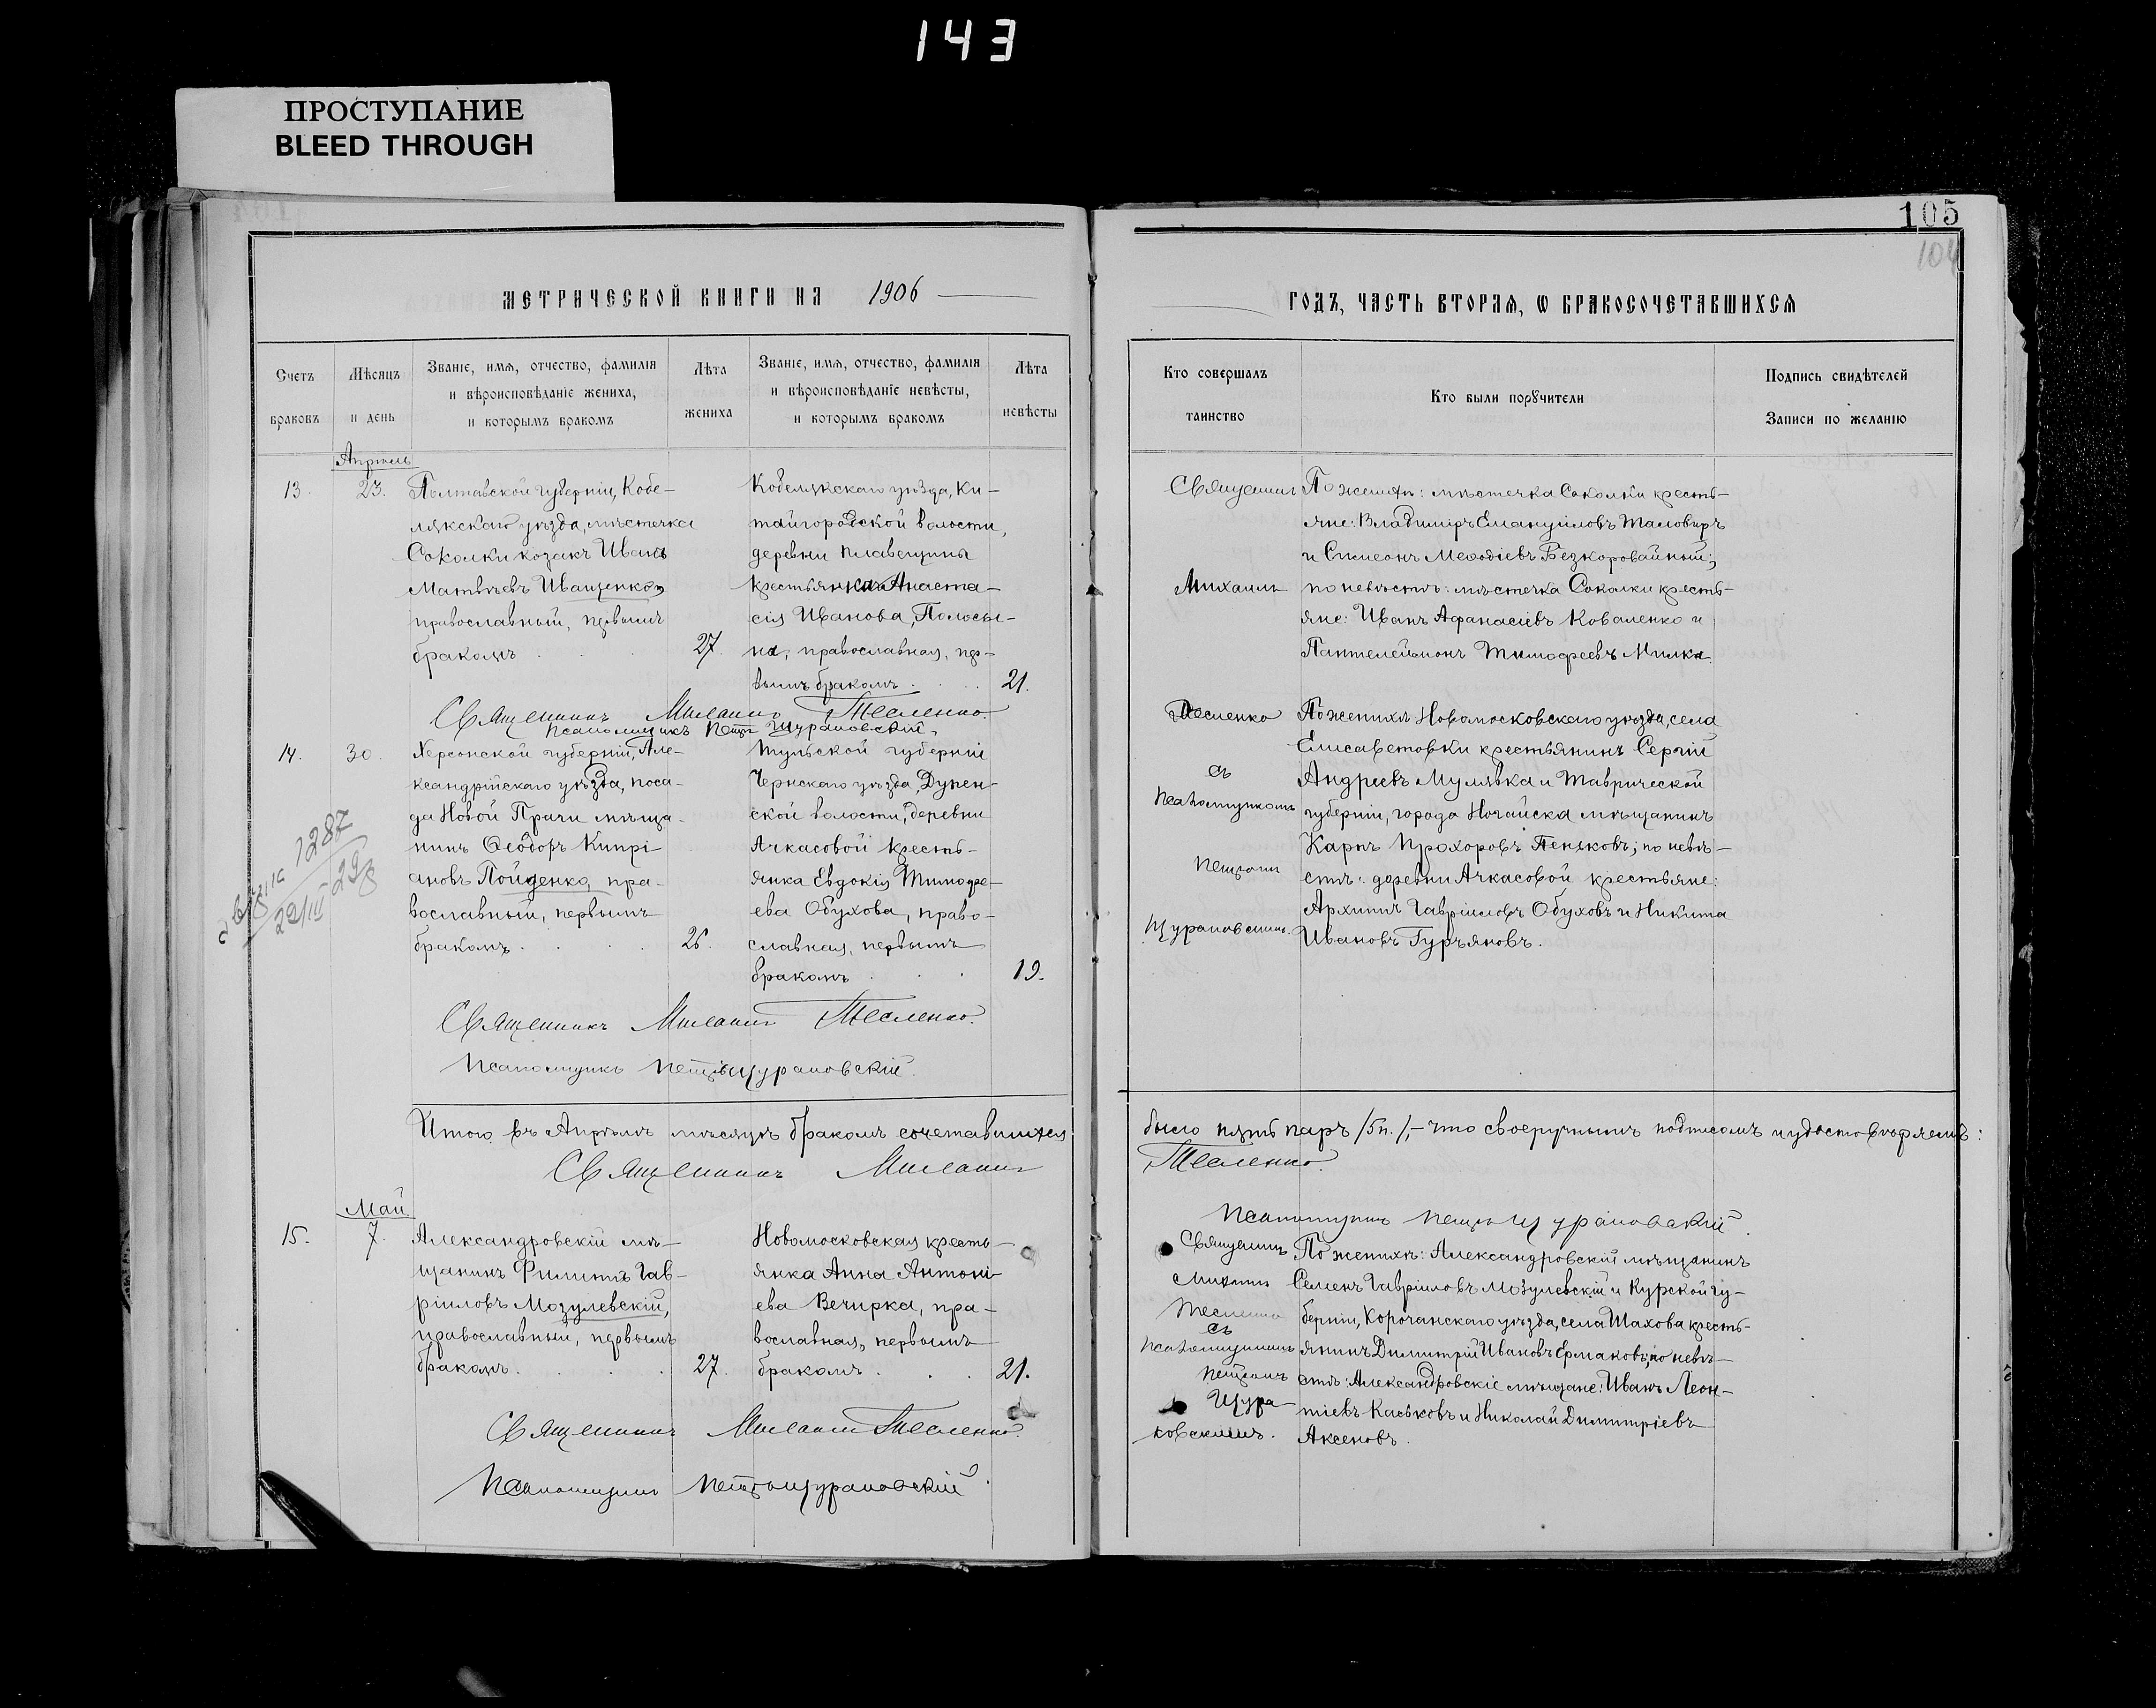 143
ПРОСТУПАНИЕ
BLEED THROUGH
105
104
МЕТРИЧЕСКОЙ КНИГИ НА 1906
ГОДЪ, ЧАСТЬ ВТОРАЯ, Ѡ БРАКОСОЧЕТАВШИХСЯ
Счетъ браковъ
Мѣсяцъ и день
Званіе, имя, отчество, фамилія
и вѣроисповѣданіе жениха,
и которымъ бракомъ
Лѣта жениха
Званіе, имя, отчество, фамилія
и вѣроисповѣданіе невѣсты,
и которымъ бракомъ
Лѣта невѣсты
Кто совершалъ
таинство
Кто были поручители
Подпись свидѣтелей
Записи по желанію
Апрѣль
13. 23.
Полтавской губерніи, Кобе-
лякскаго уѣзда, мѣстечка
Соколки козакъ Иванъ
Матвѣевъ Иващенко,
православный, первымъ
бракомъ . . . 27.
Кобелякскаго уѣзда, Ки-
тайгородской волости,
деревни Плавещины
крестьянка Анаста-
сія Иванова,
на, православная, пер-
вымъ бракомъ . . . 21.
Священникъ Михаилъ Тесленко.
Псаломщикъ Петръ Щурановскій.
Священникъ
Михаилъ
Тесленко
съ
псаломщикомъ
Петромъ
Щурановскимъ.
По женихѣ: мѣстечка Соколки кресть-
яне: Владиміръ Емануиловъ Таловиръ
и Симеонъ Меѳодіевъ Безкоровайный;
по невѣстѣ: мѣстечка Соколки кресть-
яне: Иванъ Афанасіевъ Коваленко и
Пантелеймонъ Тимофеевъ Милка.
14. 30.
Херсонской губерніи, Але-
ксандрійскаго уѣзда, поса-
да Новой Праги мѣща-
нинъ Ѳеодоръ Кипрі-
ановъ Пойденко, пра-
вославный, первымъ
бракомъ . . . 26.
Тульской губерніи
Чернскаго уѣзда, Дупен-
ской волости, деревни
Ачкасовой кресть-
янка Евдокія Тимофе-
ева Обухова, право-
славная, первымъ
бракомъ . . . 19.
1287
22/III 29
По женихѣ Новомосковскаго уѣзда, села
Елисаветовки крестьянинъ Сергій
Андреевъ Мулявка и Таврической
губерніи, города Ногайска мѣщанинъ
Карпъ Прохоровъ Пеньковъ; по невѣ-
стѣ: деревни Ачкасовой крестьяне:
Архипъ Гавріиловъ Обуховъ и Никита
Ивановъ Гурьяновъ.
Священникъ Михаилъ Тесленко.
Псаломщикъ Петръ Щурановскій.
Итого въ Апрѣлѣ мѣсяцѣ бракомъ сочетавшихся было пять паръ /5 п./, – что своеручнымъ подписомъ и удостовѣряемъ:
Священникъ Михаилъ Тесленко.
Псаломщикъ Петръ Щурановскій.
Май
15. 7.
Александровскій мѣ-
щанинъ Филиппъ Гав-
ріиловъ Мозулевскій,
православный, первымъ
бракомъ . . . 27.
Новомосковская кресть-
янка Анна Антоні-
ева Вечирка, пра-
вославная, первымъ
бракомъ . . . 21.
Священникъ
Михаилъ
Тесленко
съ
псаломщикомъ
Петромъ
Щура-
новскимъ.
По женихѣ: Александровскій мѣщанинъ
Семенъ Гавріиловъ Мозулевскій и Курской гу-
берніи, Корочанскаго уѣзда, села Шахова кресть-
янинъ Димитрій Ивановъ Ермаковъ; по невѣ-
стѣ: Александровскіе мѣщане: Иванъ Леон-
тіевъ Каськовъ и Николай Димитріевъ
Аксеновъ.
Священникъ Михаилъ Тесленко.
Псаломщикъ Петръ Щурановскій.